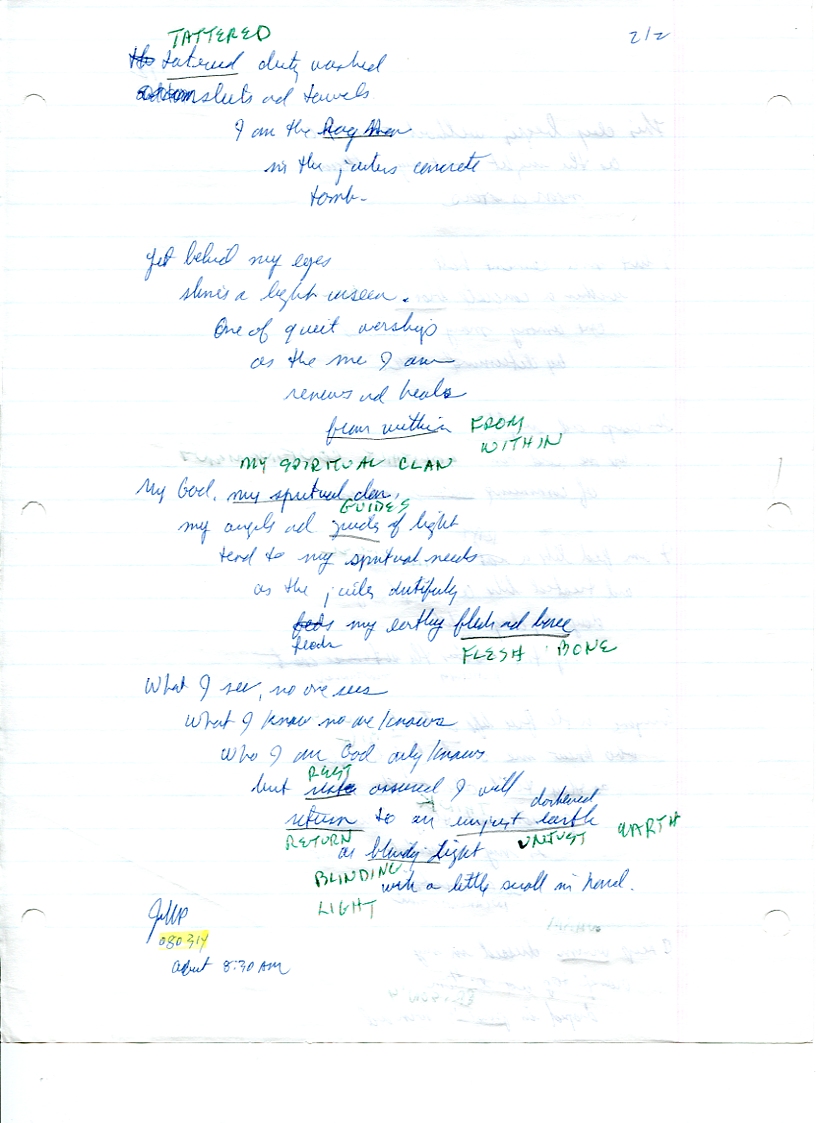 TATTERED
2/2
the tatered duty washed
sluts ad towels
I am the Rag Man
in the jailers concrete
tomb.
yet behid my eyes
shines a light unseen.
One of quiet worship
as the me I am
renews ad heals
from within FROM
WITHIN
MY SPIRITUAL CLAN
My God, my spritual clan,
GUIDES
my angels ad guides of light
tend to my spritual needs
as the jailer dutifuly
feeds my earthy flesh ad bone
feeds
FLESH BONE
What I see, no one sees
What I know no one knows
Who I am God only knows
REST
but rest assured I will darkened
return to an unjust earth
RETURN UNJUST EARTH
as blinding Light
BLINDING with a little scroll in hand.
LIGHT
080314
about 8:30 AM